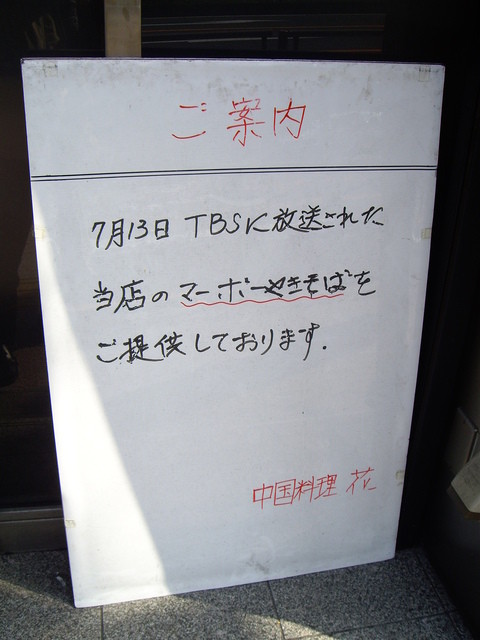 ご案内
7月13日 TBSに放送された
当店のマーボーやきそばを
ご提供しております.
中国料理 花